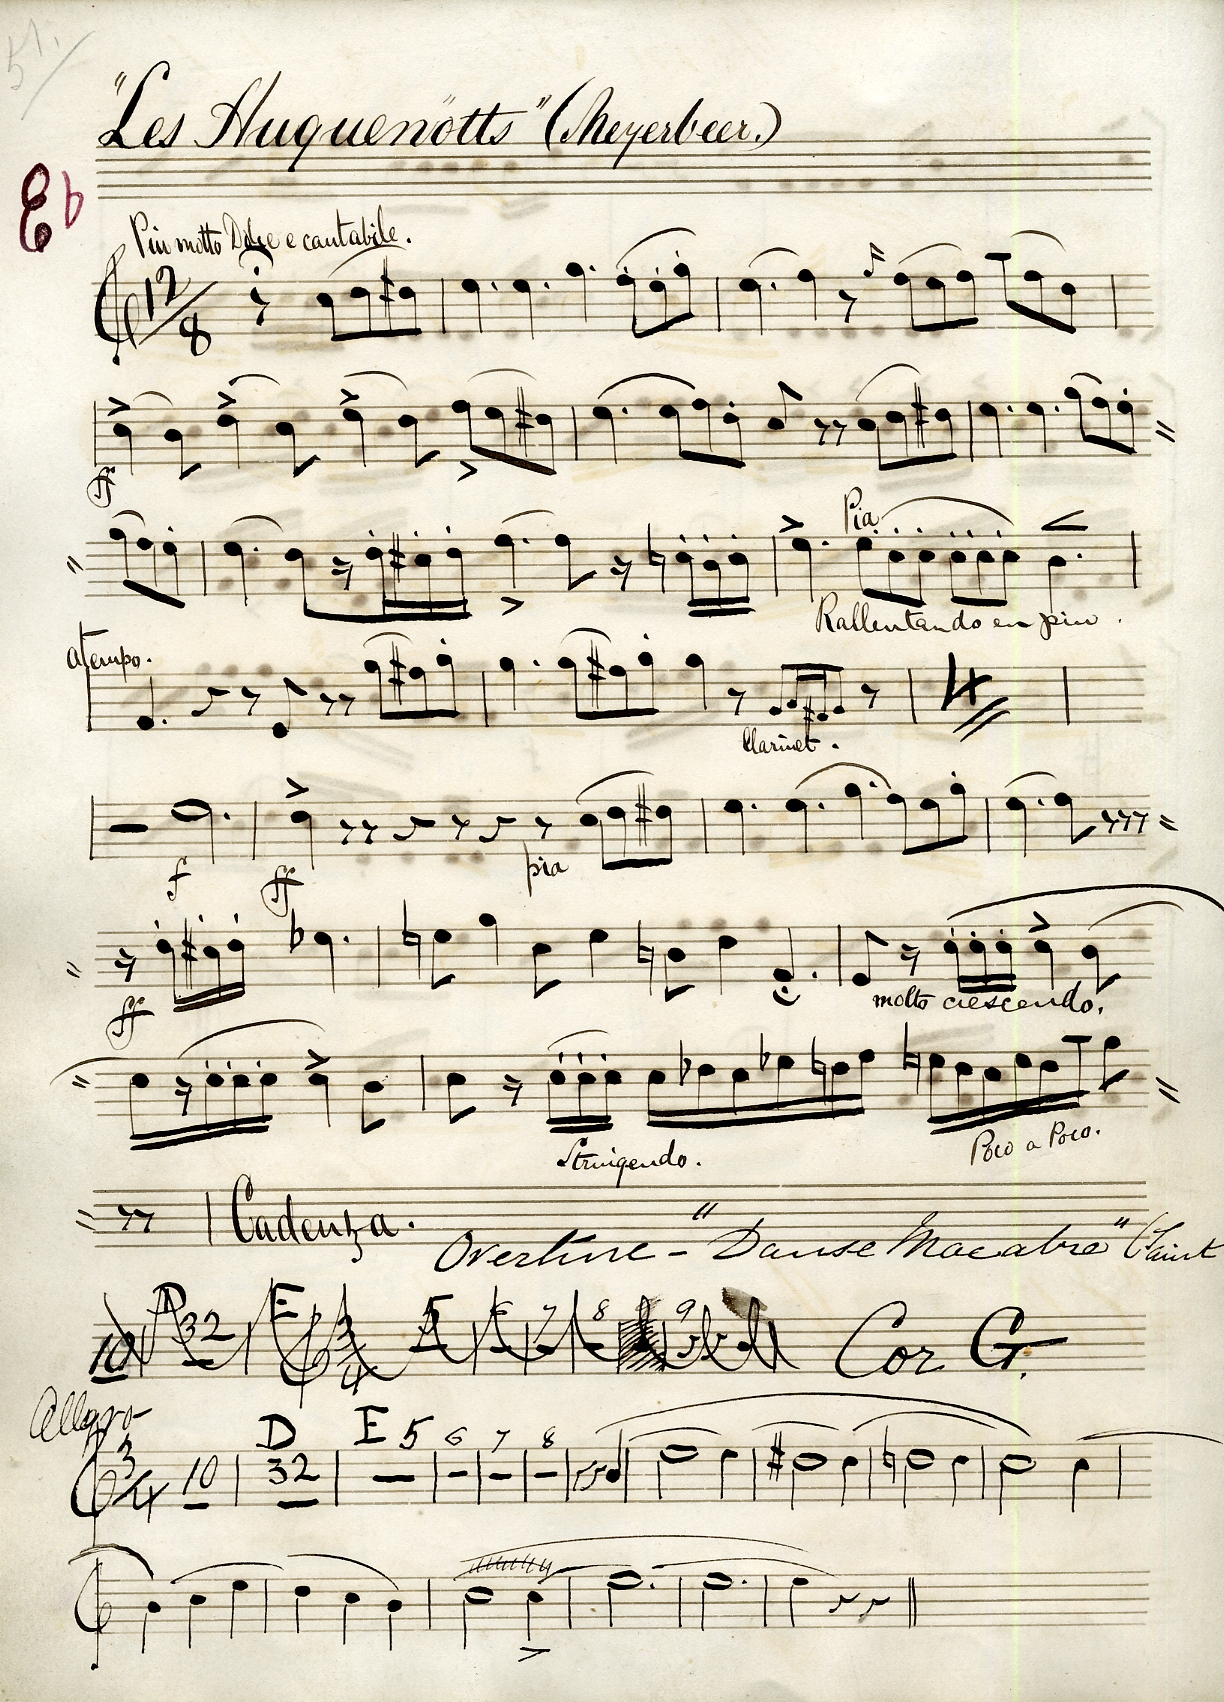 51.
"Les Huguenotts" (Meyerbeer.)
E♭
Piu molto Dolce e cantabile.
12/8
ff
Pia
Rallentando en piu.
atempo.
4
Clarinet.
f
ff
pia
ff
molto crescendo.
Stringendo.
Poco a Poco.
Cadenza.
Overture - "Danse Macabre" (Saint
10 32 E 3/4 5 6 7 8 9 Cor G.
Allegro
D E 5 6 7 8
3/4 10 32